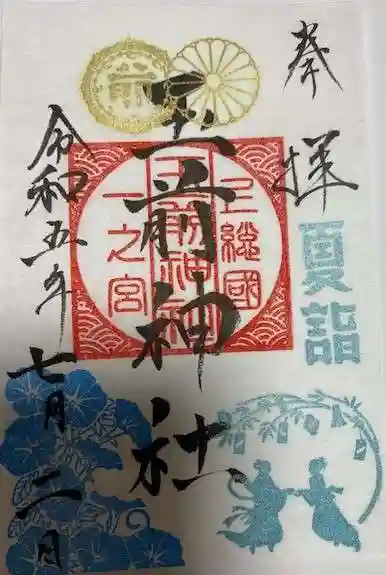 奉拝
夏詣
玉前神社
上総國
玉前神社
一之宮
前
令和五年
七月二日